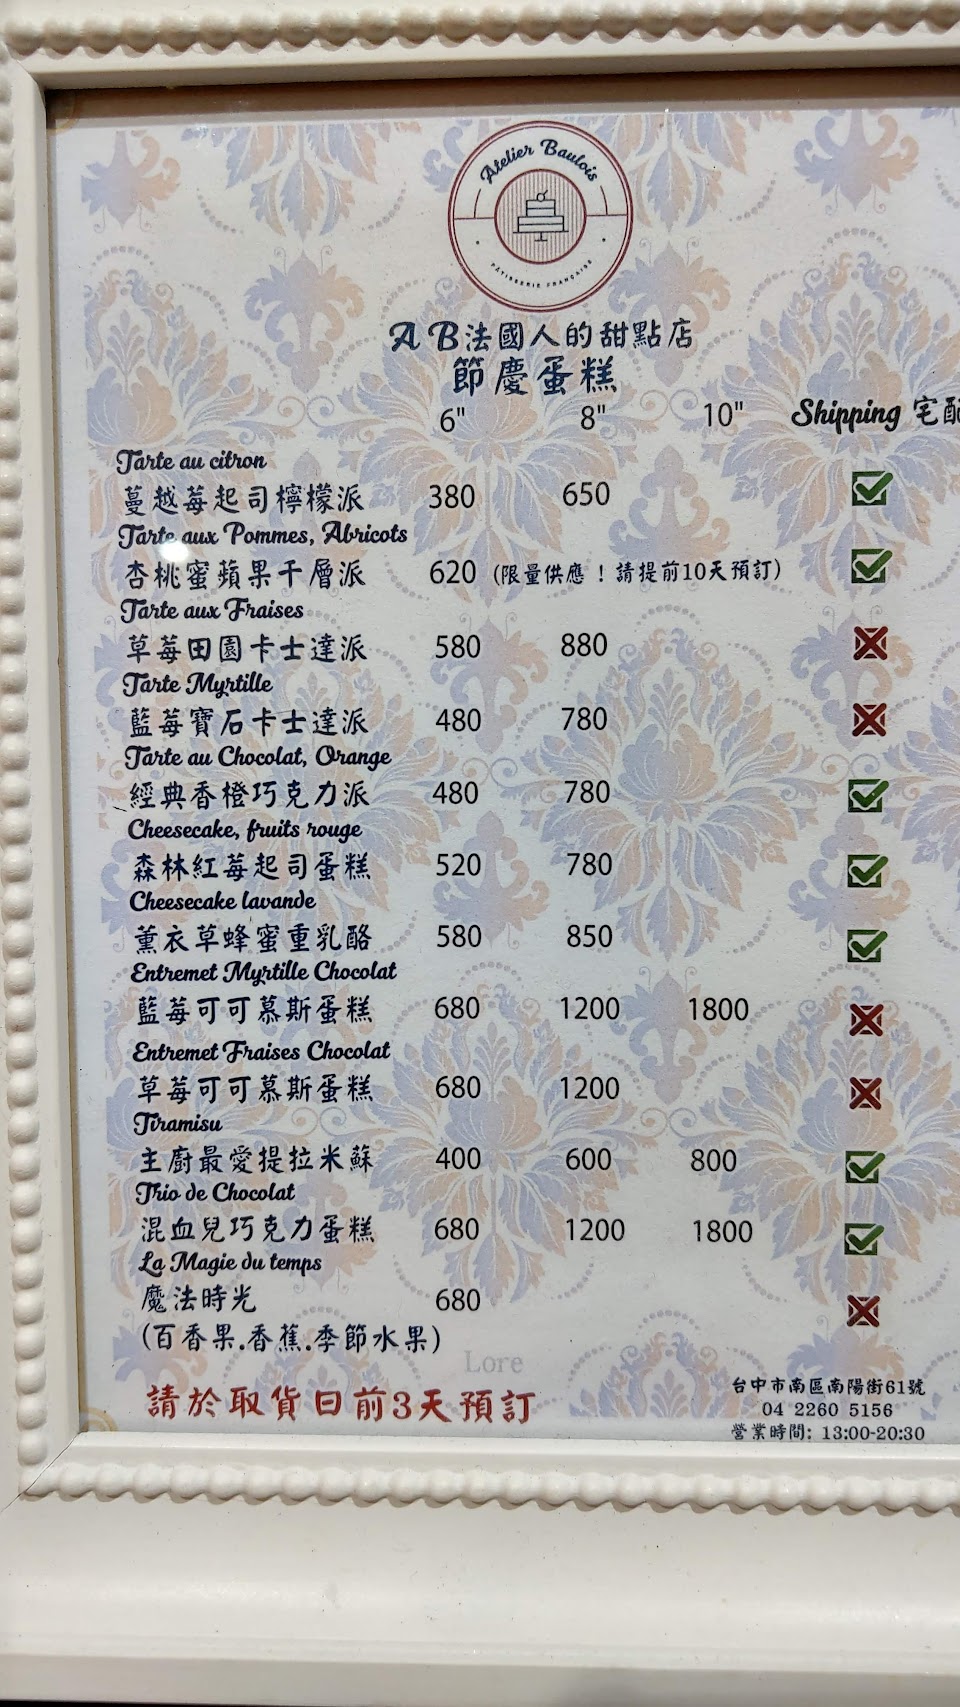 Atelier Baulois
PÂTISSERIE FRANÇAISE
AB法國人的甜點店
節慶蛋糕
6" 8" 10" Shipping 宅配
Tarte au citron
蔓越莓起司檸檬派 380 650
Tarte aux Pommes, Abricots
杏桃蜜蘋果千層派 620 (限量供應！請提前10天預訂)
Tarte aux Fraises
草莓田園卡士達派 580 880
Tarte Myrtille
藍莓寶石卡士達派 480 780
Tarte au Chocolat, Orange
經典香橙巧克力派 480 780
Cheesecake, fruits rouge
森林紅莓起司蛋糕 520 780
Cheesecake lavande
薰衣草蜂蜜重乳酪 580 850
Entremet Myrtille Chocolat
藍莓可可慕斯蛋糕 680 1200 1800
Entremet Fraises Chocolat
草莓可可慕斯蛋糕 680 1200
Tiramisu
主廚最愛提拉米蘇 400 600 800
Trio de Chocolat
混血兒巧克力蛋糕 680 1200 1800
La Magie du temps
魔法時光 680
(百香果.香蕉.季節水果)
Lore
請於取貨日前3天預訂
台中市南區南陽街61號
04 2260 5156
營業時間: 13:00-20:30